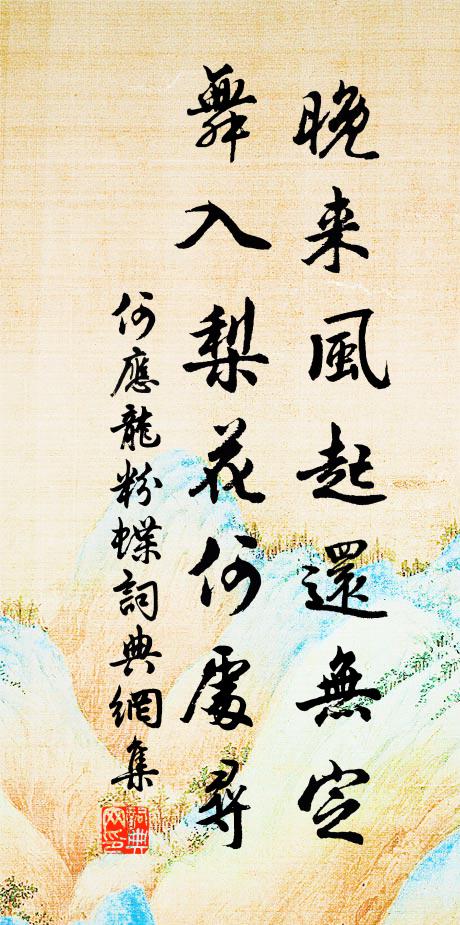 晚来風起還無定
舞入梨花何處尋
何應龍粉蝶詞典網集
詞典网印